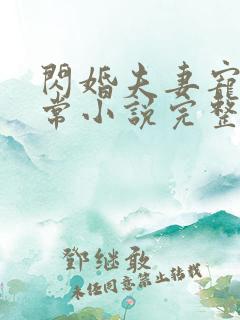 閃婚夫妻寵
常小說完整
鄧继敢
未任同意禁止转载